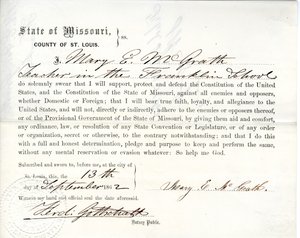 State of Missouri, } ss.
COUNTY OF ST. LOUIS.
I, Mary E. McGrath
Teacher in the Franklin School
do solemnly swear that I will support, protect and defend the Constitution of the United
States, and the Constitution of the State of Missouri, against all enemies and opposers,
whether Domestic or Foreign; that I will bear true faith, loyalty, and allegiance to the
United States, and will not, directly or indirectly, adhere to the enemies or opposers thereof,
or of the Provisional Government of the State of Missouri, by giving them aid and comfort,
any ordinance, law, or resolution of any State Convention or Legislature, or of any order
or organization, secret or otherwise, to the contrary notwithstanding; and that I do this
with a full and honest determination, pledge and purpose to keep and perform the same,
without any mental reservation or evasion whatever: So help me God.
Subscribed and sworn to, before me, at the city of
St. Louis, this the 13th
day of September 1862
Mary E. McGrath.
Witness my hand and official seal the date aforesaid.
Notary Public.